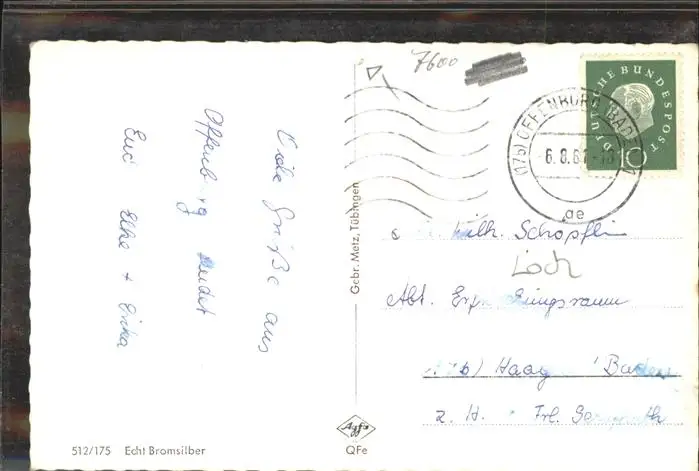 7600
DEUTSCHE BUNDESPOST
10
(17b) OFFENBURG (BADEN) 1
6.8.61
ae
Viele Grüße aus
Offenburg sendet
Euch Elke + Erika
Gebr. Metz, Tübingen
Wilh. Schöpflin
Loch
Abt.
17b) Haagen Baden
z. H. Frl.
Agfa
QFe
512/175 Echt Bromsilber